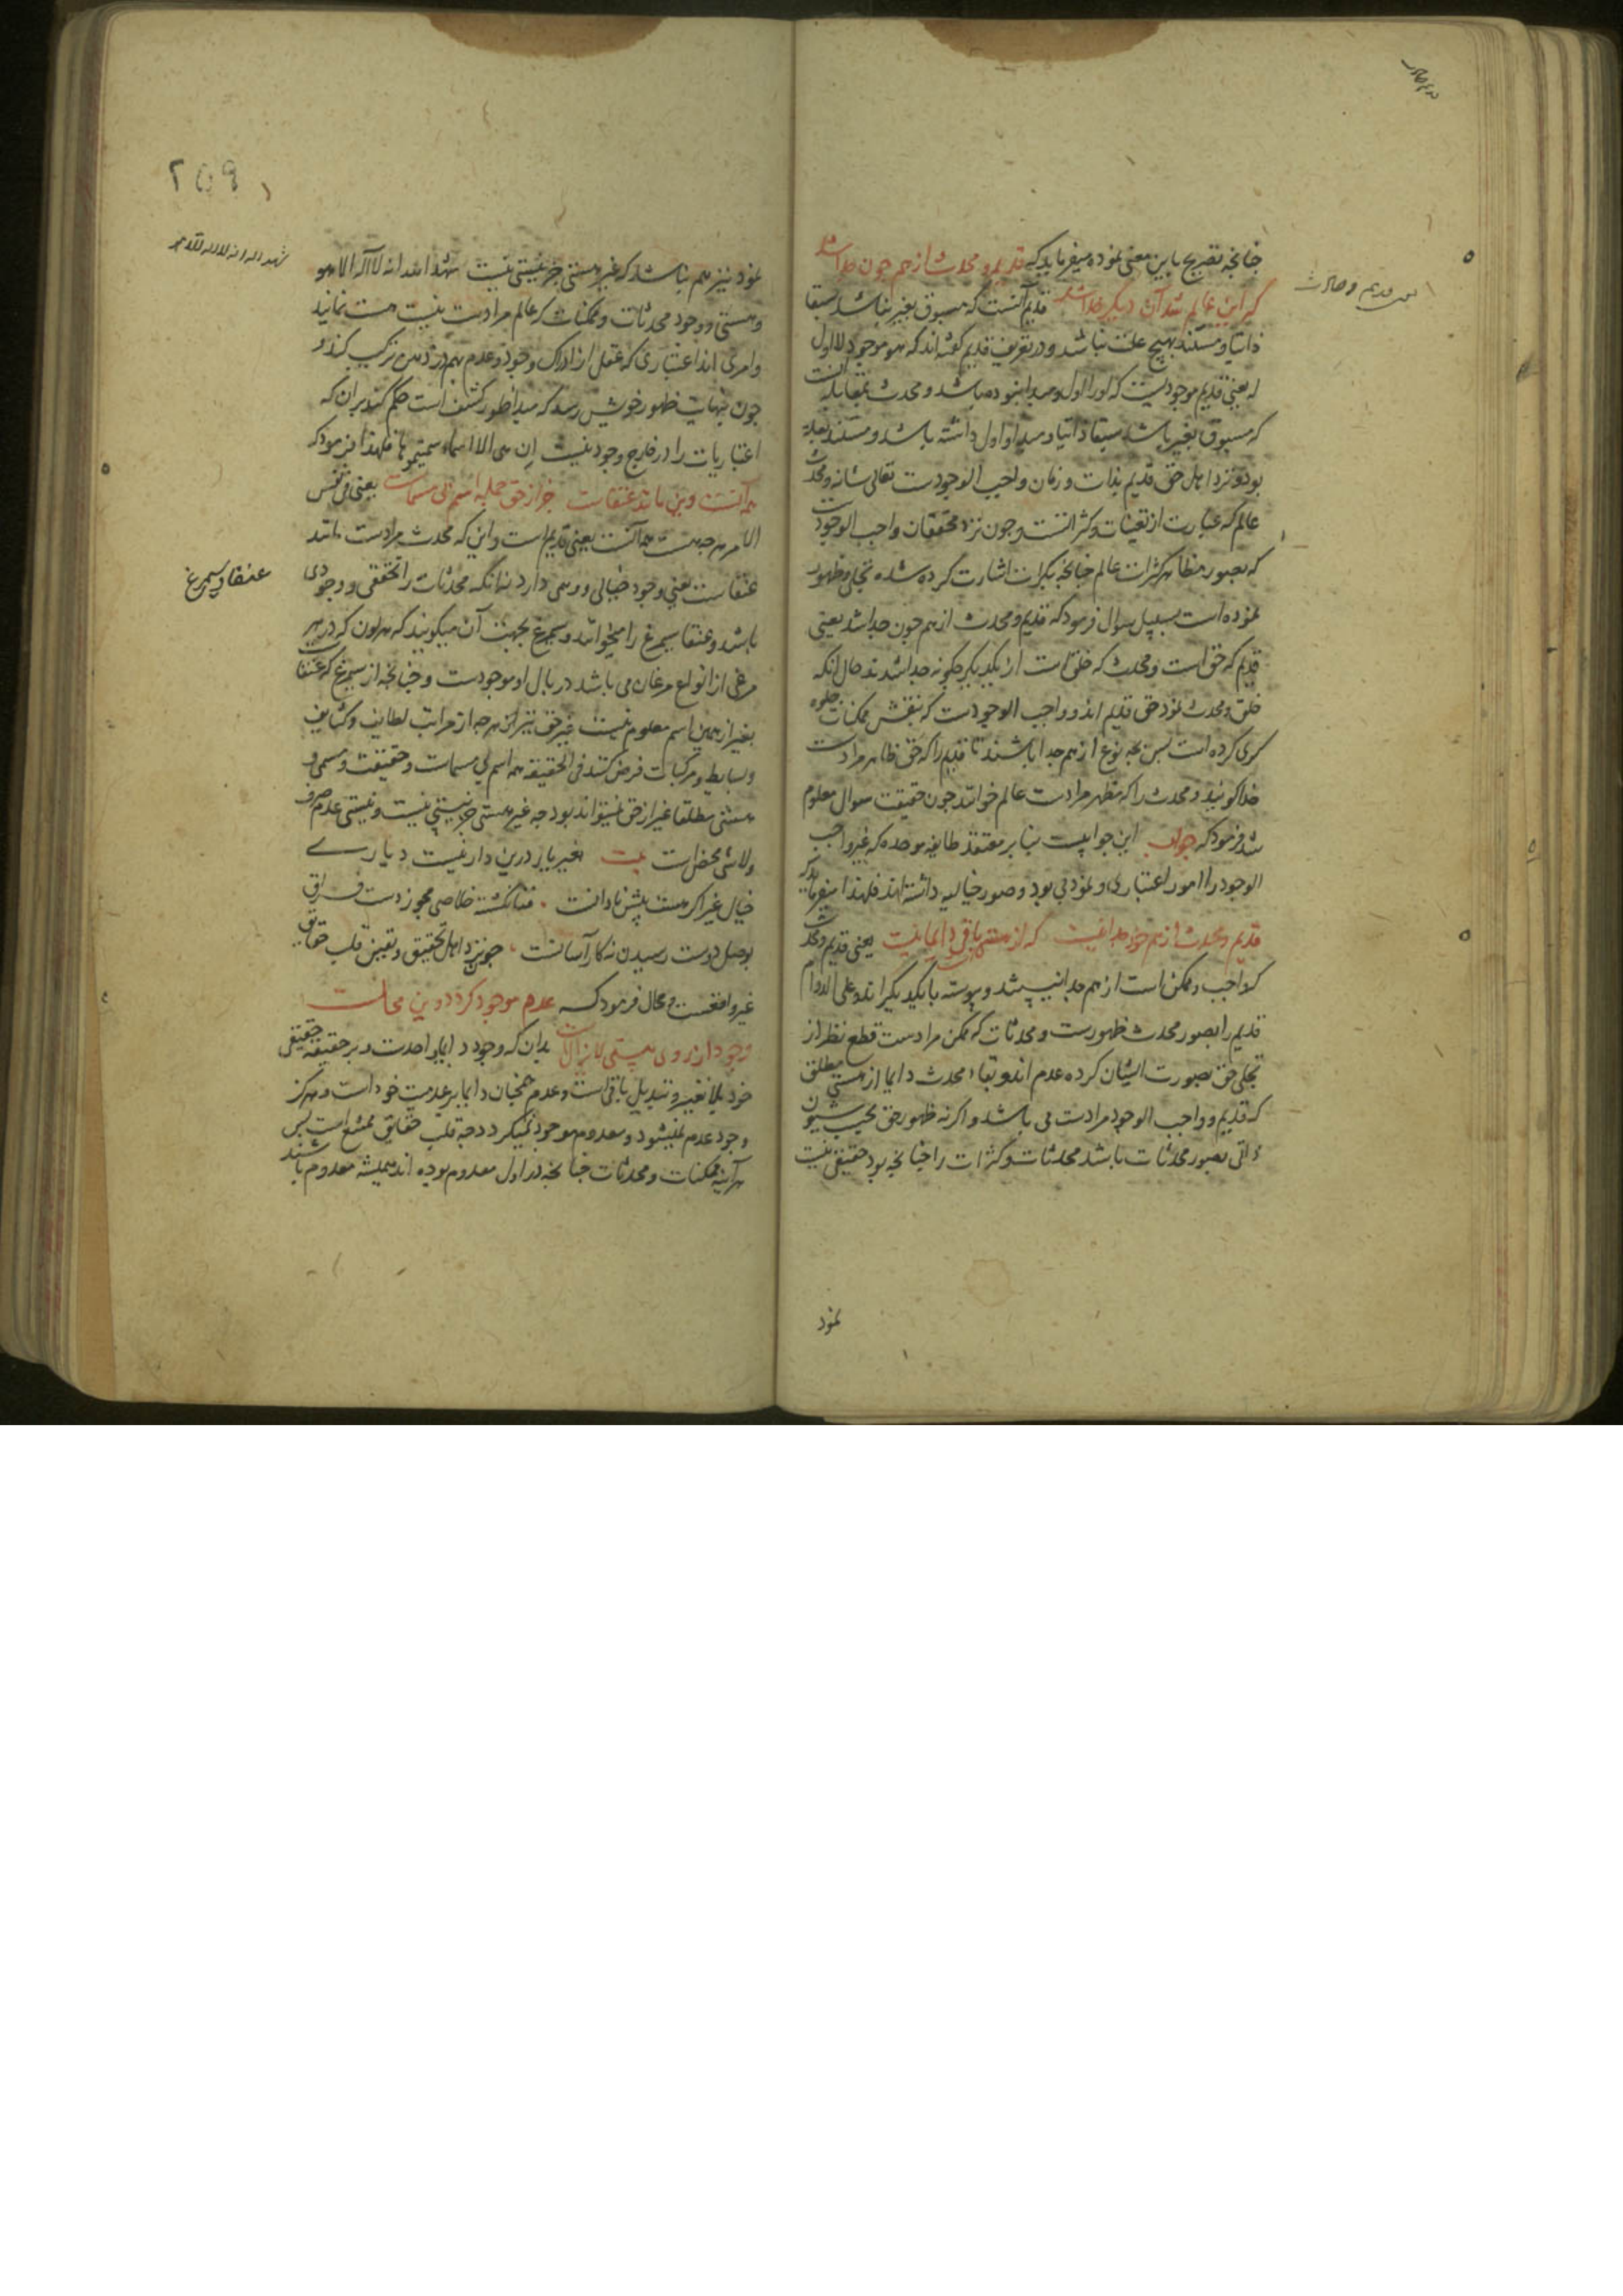 چنانچه تصریح باین معنی نموده میفرماید که قدیم و محدث از هم چون جدا شد
که این عالم شد آن دیگر خدا شد قدیم آنست که مسبوق بغیر نباشد سبقا
ذاتیا و مستند بهیچ علت نباشد و در تعریف قدیم گفته‌اند که هو موجود لا اول
له یعنی قدیم موجودیست که او را اول و مبدا نبوده باشد و محدث بمقابله آنست
که مسبوق بغیر باشد سبقا ذاتیا و مبدا و اول داشته باشد و مستند بعلة
بود و نزد اهل حق قدیم بذات و زمان واجب الوجودست تعالی شانه و محدث
عالم که عبارت از تعینات و کثراتست و چون نزد محققان واجب الوجودست
که بصور مظاهر کثرات عالم چنانچه بکرات اشارت کرده شده تجلی و ظهور
نموده است بسبیل سوال فرمود که قدیم و محدث از هم چون جدا شد یعنی
قدیم که حق است و محدث که خلق است از یکدیگر چگونه جدا شدند حال آنکه
خلق و محدث نمود حق قدیم‌اند و واجب الوجودست که بنقش ممکنات جلوه
گری کرده است پس بچه نوع از هم جدا باشند تا قدیم را که حق ظاهر مرادست
خدا گویند و محدث را که مظهر مرادست عالم خوانند چون حقیقت سوال معلوم
شد فرمود که جواب این جوابیست بنابر معتقد طایفه موحده که غیر واجب
الوجود را امور اعتباری و نمود بی بود و صور خیالیه داشته‌اند فلهذا میفرماید که
قدیم و محدث از هم خود جدا نیست که از هستی است باقی دایما نیست یعنی قدیم و محدث
که واجب و ممکن است از هم جدا نیستند و پیوسته با یکدیگراند و علی الدوام
قدیم را بصور محدث ظهورست و محدثات که ممکن مرادست قطع نظر از
تجلی حق بصورت ایشان کرده عدم‌اند و بقاء محدث دایما از هستی مطلق
که قدیم و واجب الوجود مرادست می باشد و اگر نه ظهور حق بحسب شیون
ذاتی بصور محدثات باشد محدثات و کثرات را چنانچه بود حقیقی نیست
نمود
عنقا و سیمرغ
نمود نیز هم نباشد که غیر هستی جز نیستی نیست شهد الله انه لا اله الا هو
و هستی و وجود محدثات و ممکنات که عالم مرادست نیست هست نمایند
و امری‌اند اعتباری که عقل از ادراک وجود و عدم بهم در ذهن ترکیب کند و
چون بنهایت ظهور خویش رسد که مبدا طور کشف است حکم کند بران که
اعتباریات را در خارج وجود نیست ان هی الا اسماء سمیتموها فلهذا فرمود که
همه آنست و این مانند عنقاست جز از حق جمله اسم بی مسماست یعنی فی نفس
الامر هر چه هست همه آنست یعنی قدیم است و این که محدث مرادست مانند
عنقاست یعنی وجود خیالی و وهمی دارد نه آنکه محدثات را تحققی و وجودی
باشد و عنقا سیمرغ را میخوانند و سیمرغ بجهت آن میگویند که هر لون که در هر
مرغی از انواع مرغان می باشد در بال او موجودست و چنانچه از سیمرغ که عنقاست
بغیر از همین اسم معلوم نیست غیر حق نیز هر چه از مراتب لطایف و کثایف
و بسایط و مرکبات فرض کنند فی الحقیقه همه اسم بی مسماست و حقیقت و مسمی و
هستی مطلقا غیر از حق نمیتواند بود چه غیر هستی جز نیستی نیست و نیستی عدم صرف
ولاشی محض است بیت بغیر یار درین دار نیست دیارے
خیال غیر اگر هست پیش نادانست فنا نگشته خلاصی مجو ز دست فراق
بوصل دوست رسیدن نه کار آسانست چون نزد اهل تحقیق و یقین قلب حقایق
غیر واقعست و محال فرمود که عدم موجود گردد این محالست
وجود از روی هستی لایزالست بدان که وجود دایما بر احدیت و بر حقیقت حقیقی
خود بلا تغییر و تبدیل باقی است و عدم همچنان دایما بر عدمیت خود است و هرگز
وجود عدم نمیشود و معدوم موجود نمیگردد چه قلب حقایق ممتنع است پس
هر آینه ممکنات و محدثات چنانچه در اول معدوم بوده‌اند همیشه معدوم باشند